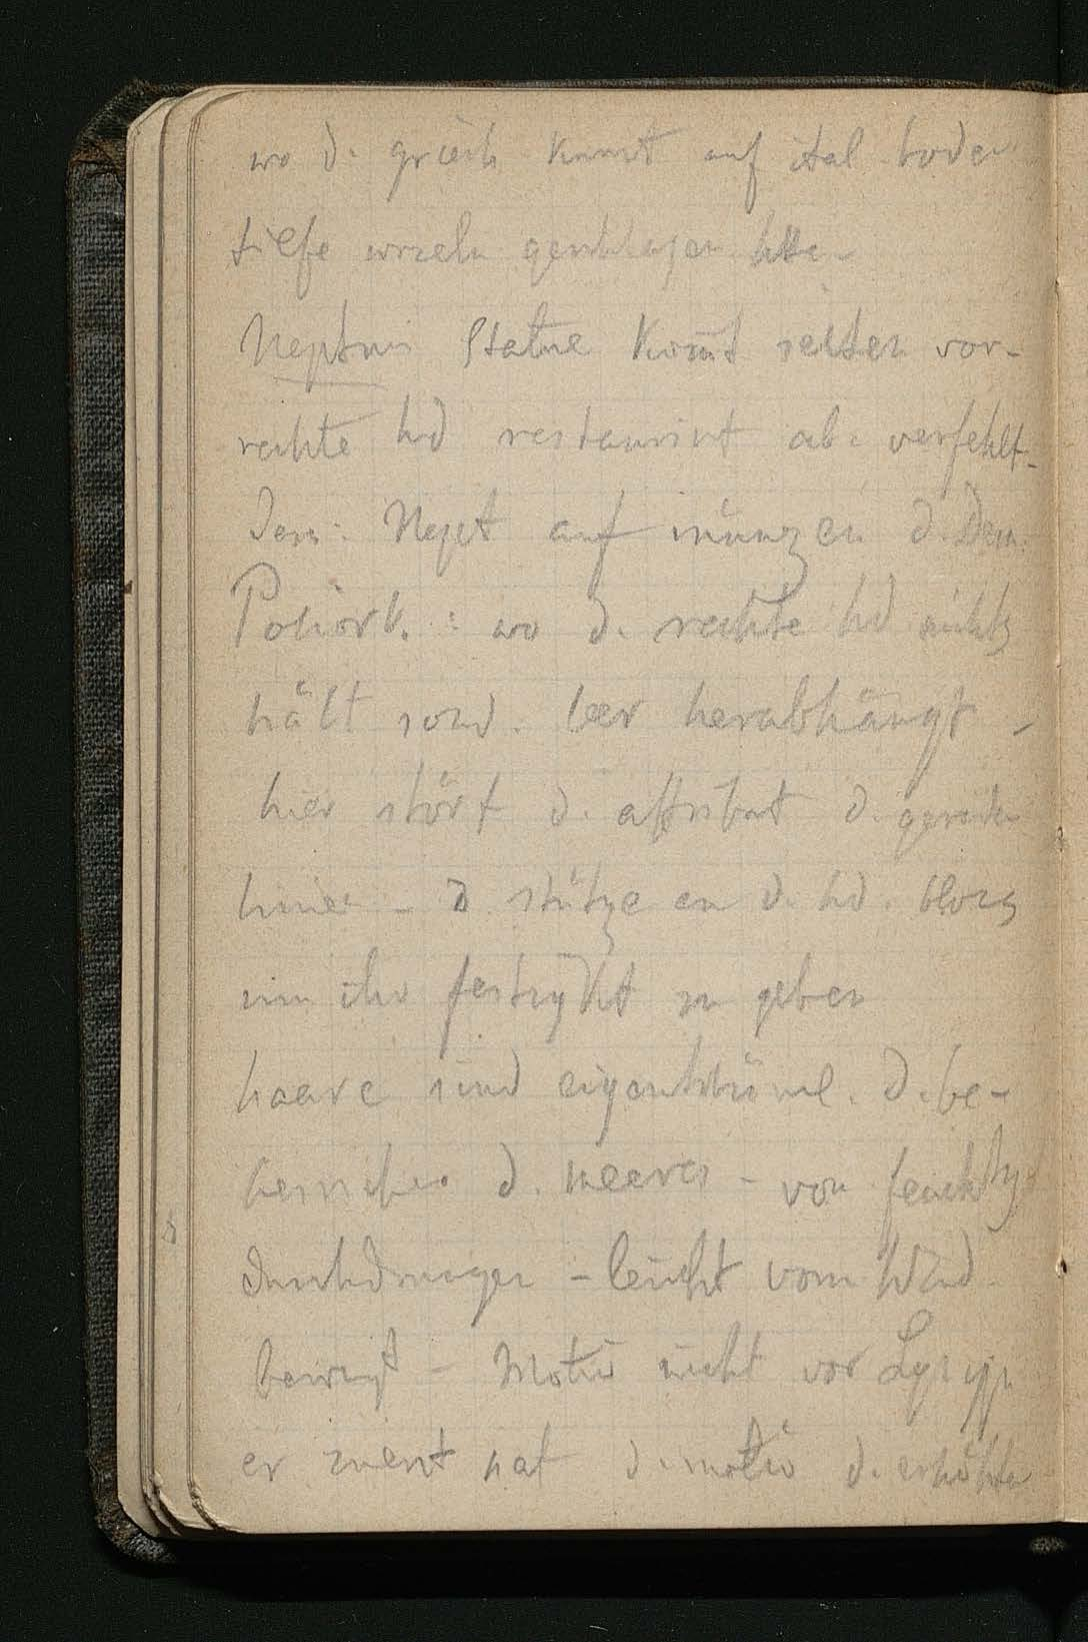 wo d. griech kunst auf ital boden
tiefe wurzeln geschlagen htte-
Neptun Statue kom̄t selten vor-
rechte hd restaurirt abe verfehlt-
Nept auf münzen d. Dem.
Poliork. : wo d. rechte hd nichts
hält sond. leer herabhängt -
hier stört d. attribut d.
- D stütze an d. hd. bloss
um ihr festigkt zu geben
haare sind eigenthüml. d. be-
herrscher d. meeres - von feuchtig
durchdrungen - leicht vom Wind
bewegt - Motiv nicht vor Lysipp
er zuerst hat d. motiv d. erhöhten